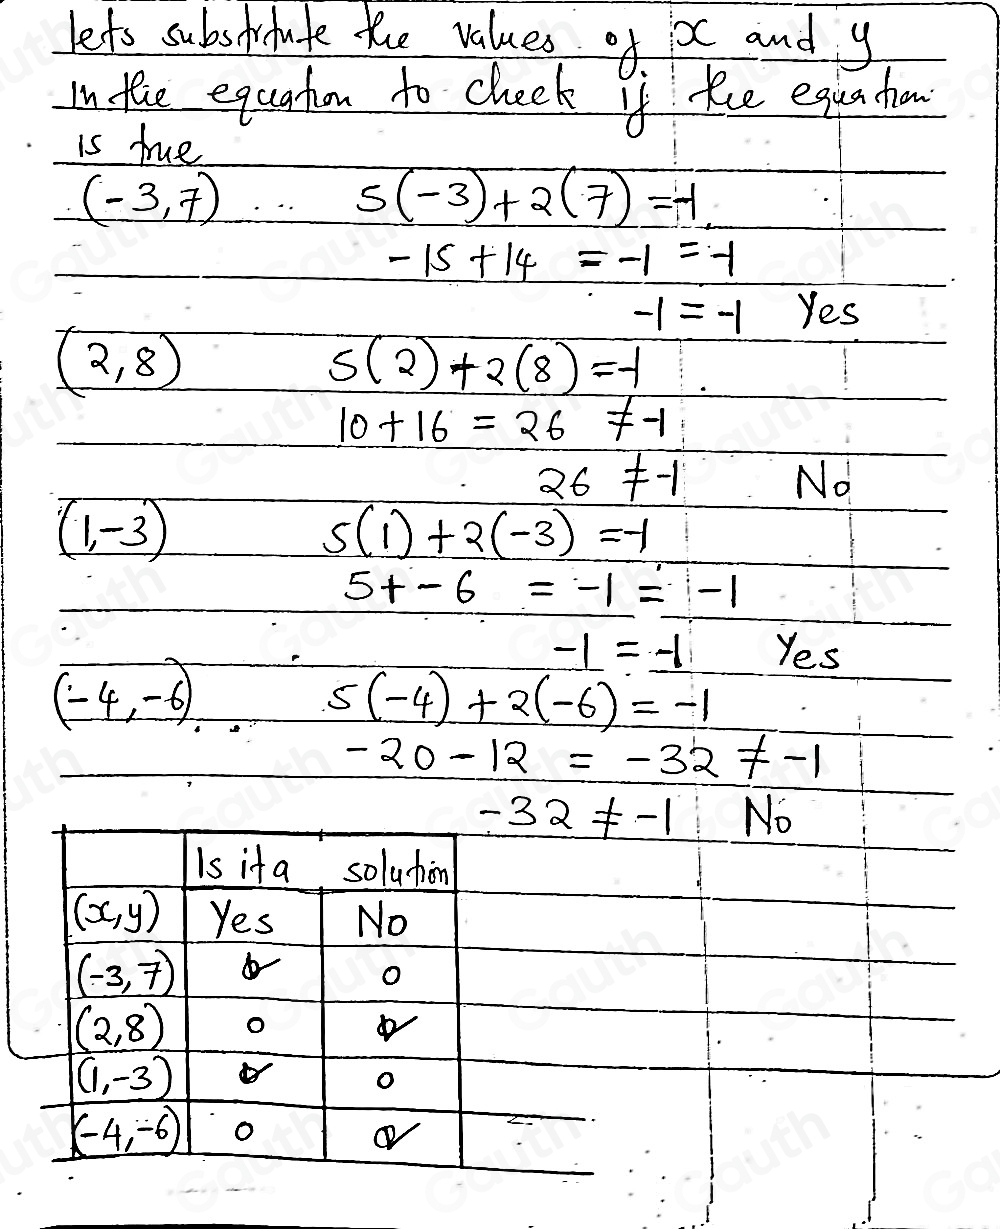 lets substitute the values of x and y
in the equation to check if the equation
is true
(-3,7) ... 5(-3)+2(7)=-1
-15+14 = -1 = -1
-1 = -1 Yes
(2,8) 5(2)+2(8)=-1
10+16 = 26 ≠-1
26 ≠-1 No
(1,-3) 5(1)+2(-3)=-1
5+-6 = -1 = -1
-1 = -1 Yes
(-4,-6) 5(-4)+2(-6)=-1
-20-12 = -32 ≠-1
-32 ≠-1 No
Is it a solution
(x,y) Yes No
(-3,7) ✓ o
(2,8) o ✓
(1,-3) ✓ o
(-4,-6) o ✓
Gauth